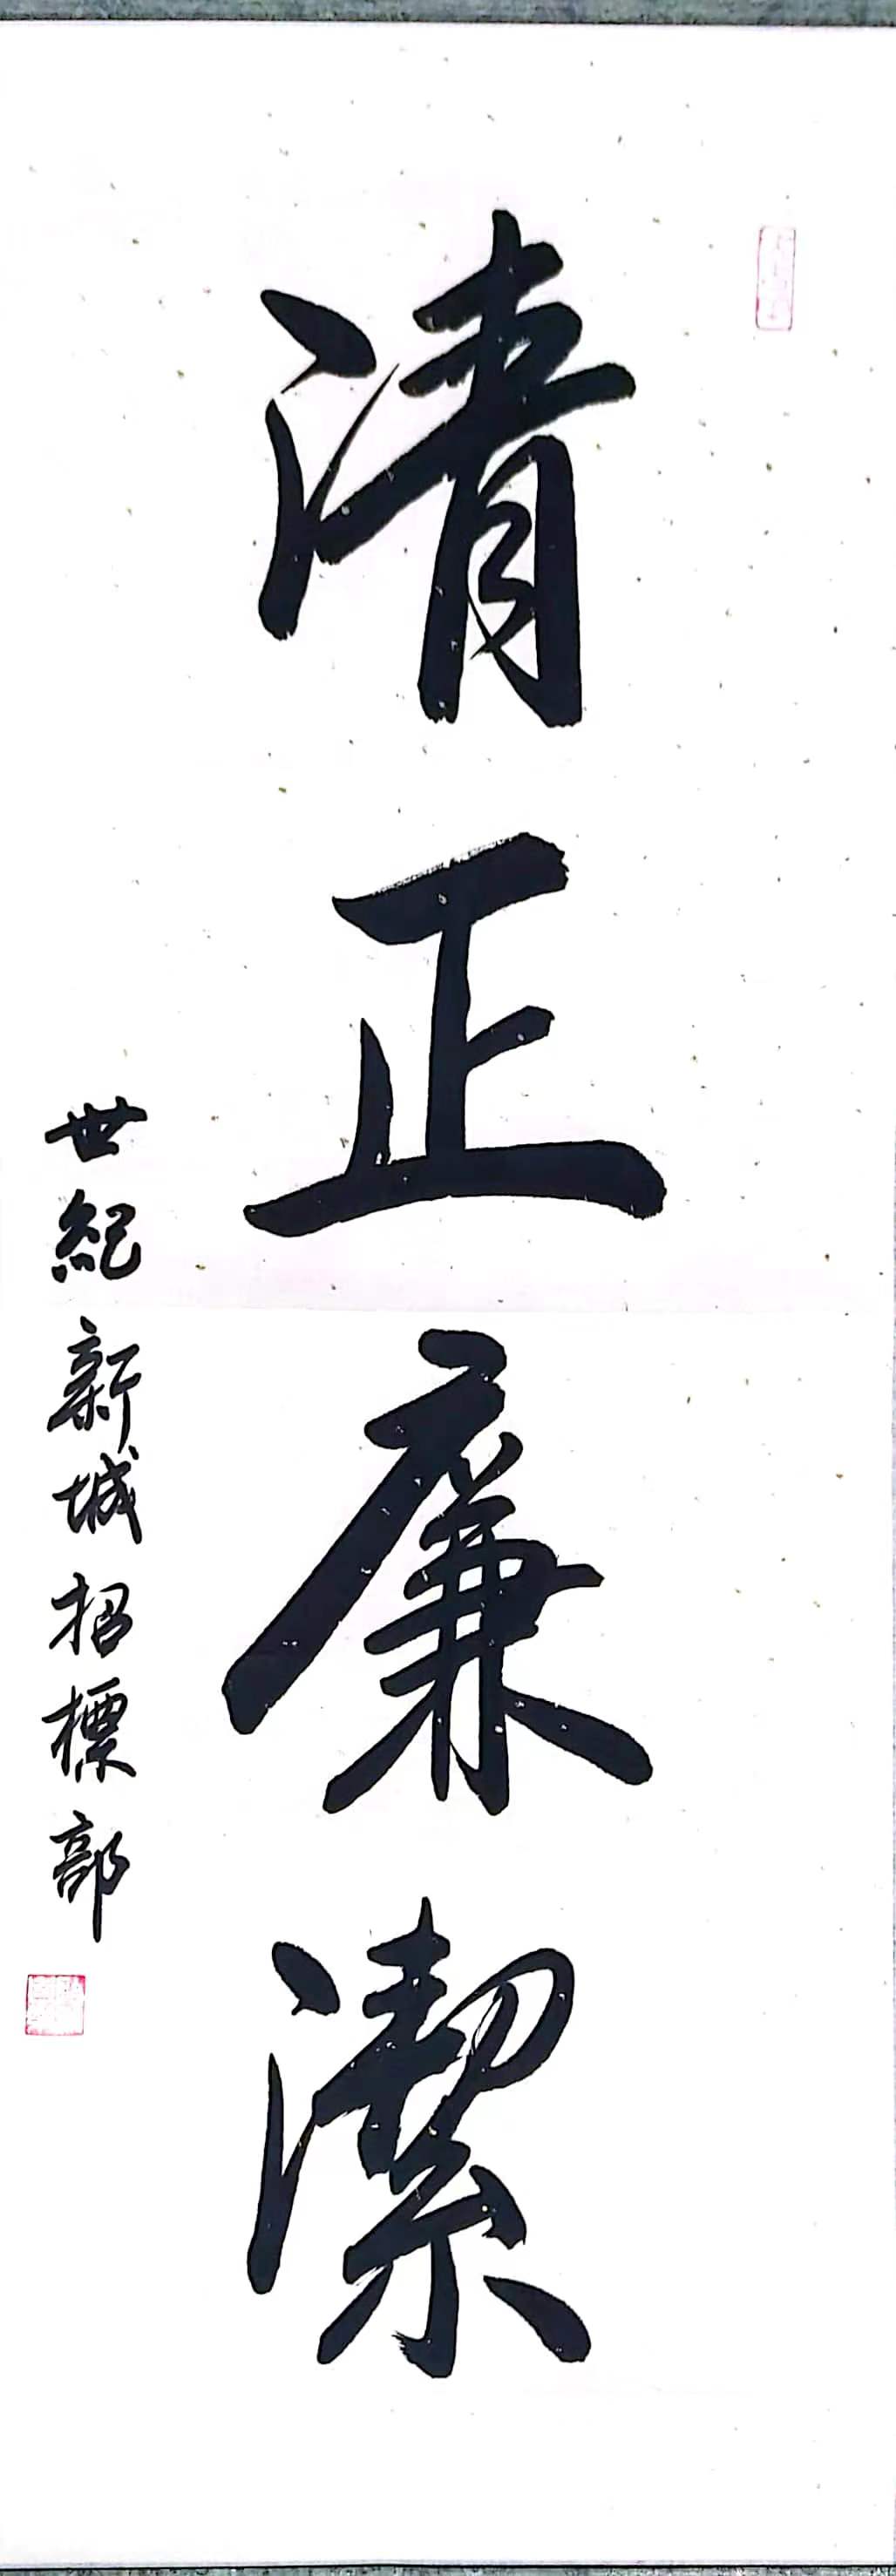 清正廉潔
世紀新城招標部